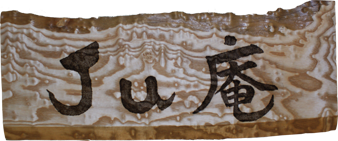 Ju庵